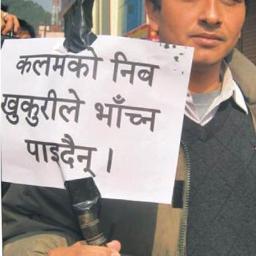 कलमको निव
खुकुरीले भाँच्न
पाइदैन् ।